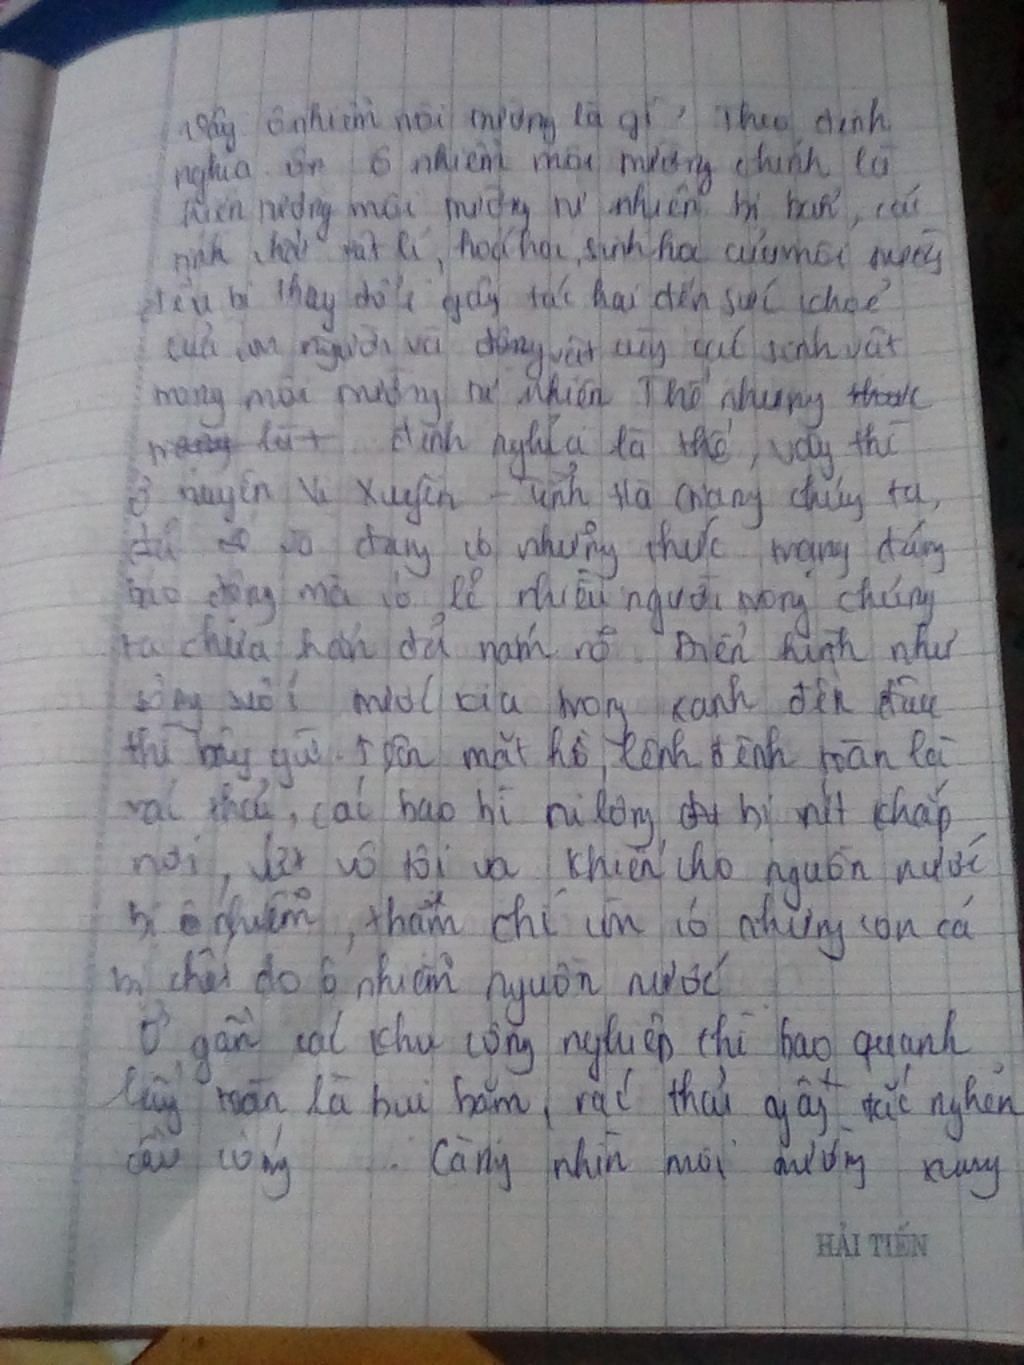 Vậy ô nhiễm môi trường là gì? Theo định
nghĩa ô nhiễm môi trường chính là
hiện tượng môi trường tự nhiên bị bẩn, các
tính chất vật lí, hoá học, sinh học của môi trường
đều bị thay đổi gây tác hại đến sức khoẻ
của con người và động vật cùng các sinh vật
trong môi trường tự nhiên Thế nhưng
định nghĩa là thế, vậy thì
Ở huyện Vị Xuyên - tỉnh Hà Giang chúng ta,
đã và đang có những thực trạng đáng
báo động mà có lẽ nhiều người trong chúng
ta chưa hẳn đã nắm rõ. Điển hình như
sông suối trước kia trong xanh đến đâu
thì bây giờ trên mặt hồ, lênh đênh toàn là
rác thải, các bao bì ni lông bị vứt khắp
nơi, vô tội vạ khiến cho nguồn nước
bị ô nhiễm, thậm chí còn có những con cá
bị chết do ô nhiễm nguồn nước
Ở gần các khu công nghiệp thì bao quanh
toàn là bụi bặm, rác thải gây tắc nghẽn
cầu cống ... Càng nhìn môi trường xung
HẢI TIẾN